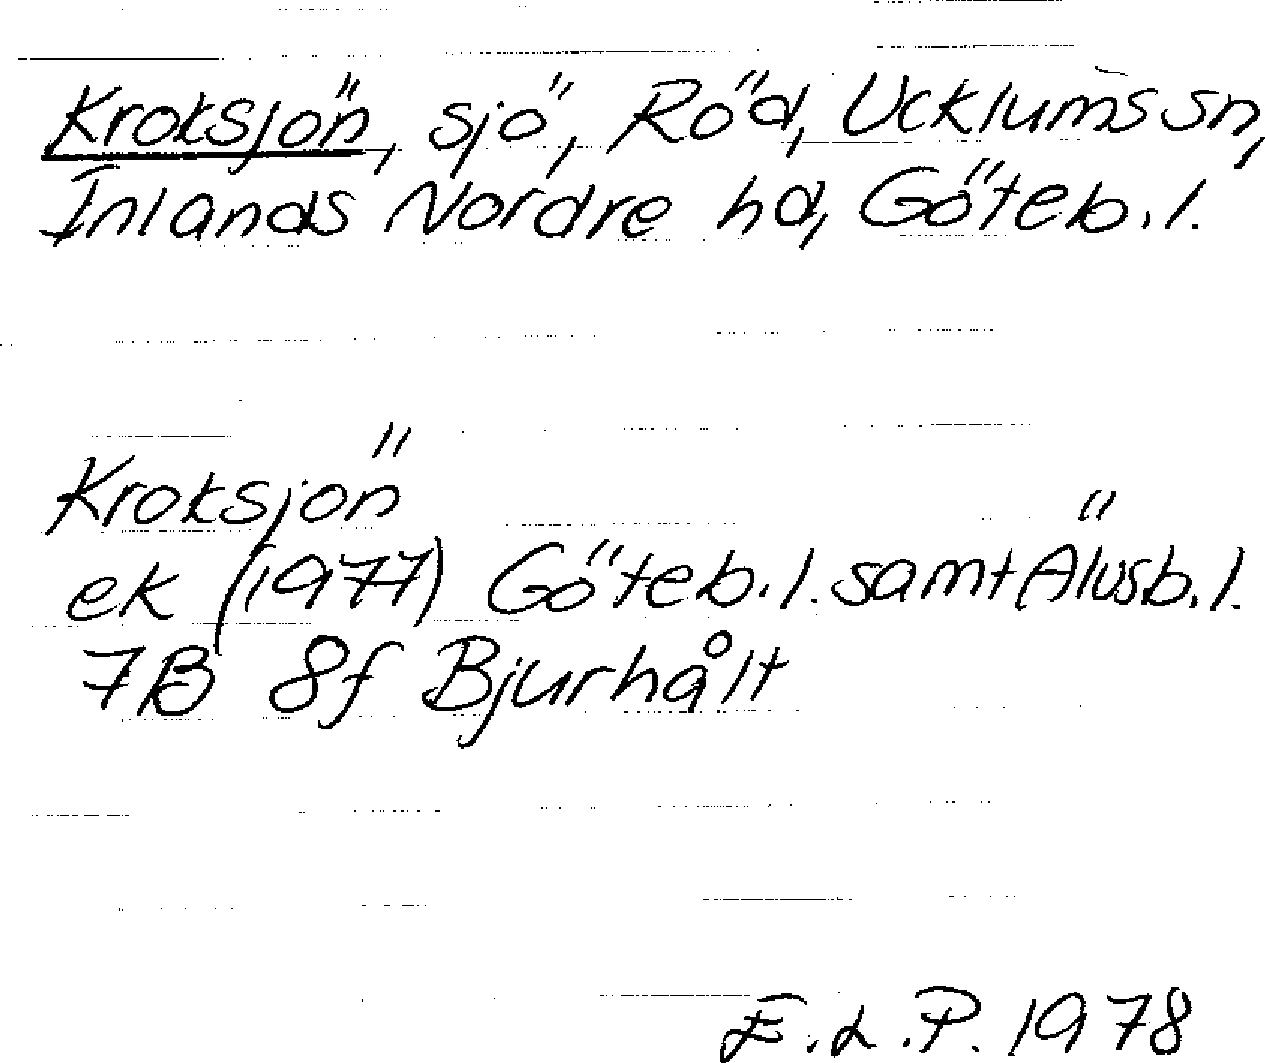 Kroksjön, sjö, Röd, Ucklums sn,
Inlands Nordre hd, Göteb. l.
Kroksjön
ek (1977) Göteb. l. samt Älvsb. l.
7B 8f Bjurhålt
E. L. P. 1978